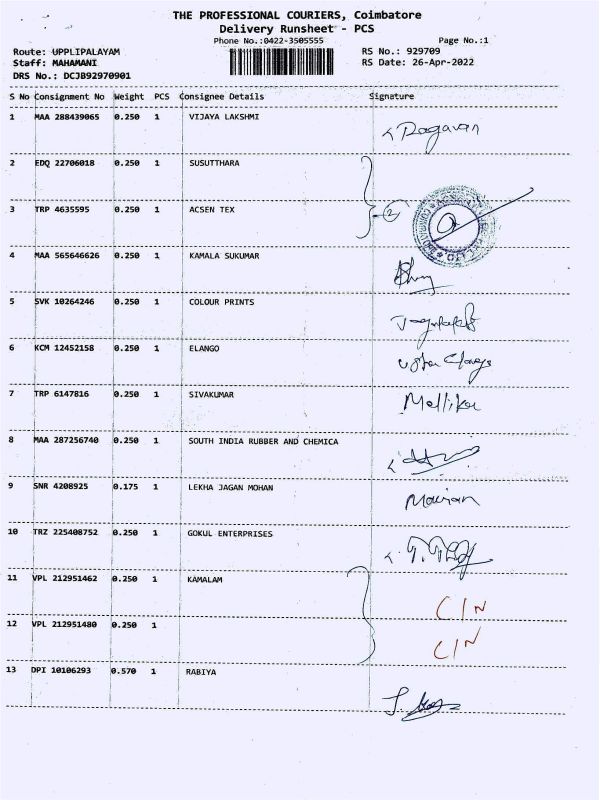 THE PROFESSIONAL COURIERS, Coimbatore
Delivery Runsheet - PCS
Phone No.:0422-3505555 Page No.:1
Route: UPPLIPALAYAM RS No.: 929709
Staff: MAHAMANI RS Date: 26-Apr-2022
DRS No.: DCJB92970901
S No Consignment No Weight PCS Consignee Details Signature
1 MAA 288439065 0.250 1 VIJAYA LAKSHMI
Ragavan
2 EDQ 22706018 0.250 1 SUSUTTHARA
3 TRP 4635595 0.250 1 ACSEN TEX
2
4 MAA 565646626 0.250 1 KAMALA SUKUMAR
5 SVK 10264246 0.250 1 COLOUR PRINTS
6 KCM 12452158 0.250 1 ELANGO
7 TRP 6147816 0.250 1 SIVAKUMAR
Mallika
8 MAA 287256740 0.250 1 SOUTH INDIA RUBBER AND CHEMICA
9 SNR 4208925 0.175 1 LEKHA JAGAN MOHAN
10 TRZ 225408752 0.250 1 GOKUL ENTERPRISES
11 VPL 212951462 0.250 1 KAMALAM
C/N
12 VPL 212951480 0.250 1
C/N
13 DPI 10106293 0.570 1 RABIYA